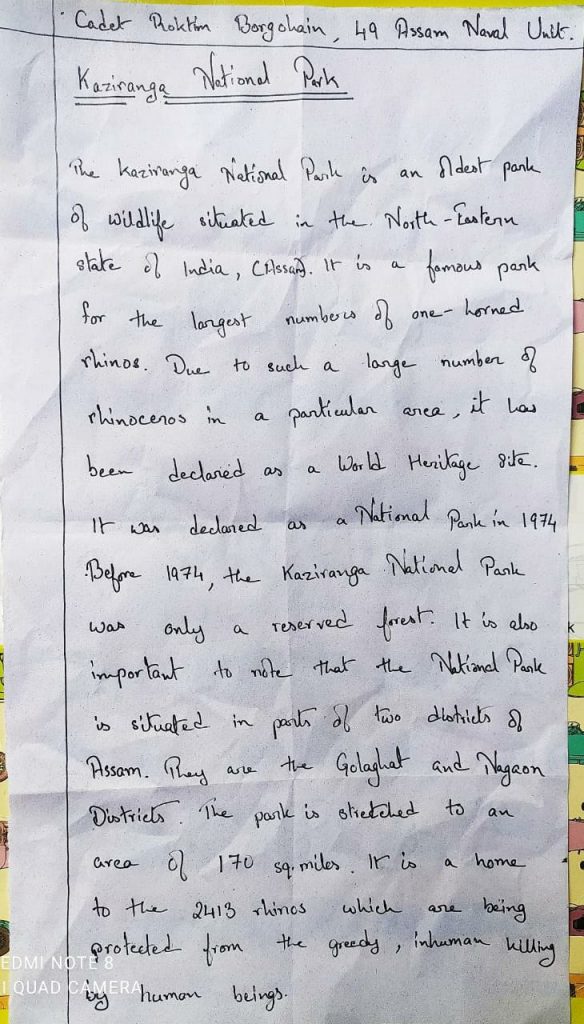 Cadet Roktim Borgohain, 49 Assam Naval Unit.
Kaziranga National Park
The Kaziranga National Park is an oldest park
of wildlife situated in the North-Eastern
state of India, (Assam). It is a famous park
for the largest numbers of one-horned
rhinos. Due to such a large number of
rhinoceros in a particular area, it has
been declared as a World Heritage Site.
It was declared as a National Park in 1974
Before 1974, the Kaziranga National Park
was only a reserved forest. It is also
important to note that the National Park
is situated in parts of two districts of
Assam. They are the Golaghat and Nagaon
Districts. The park is stretched to an
area of 170 sq.miles. It is a home
to the 2413 rhinos which are being
protected from the greedy, inhuman killing
by human beings.
EDMI NOTE 8
I QUAD CAMERA